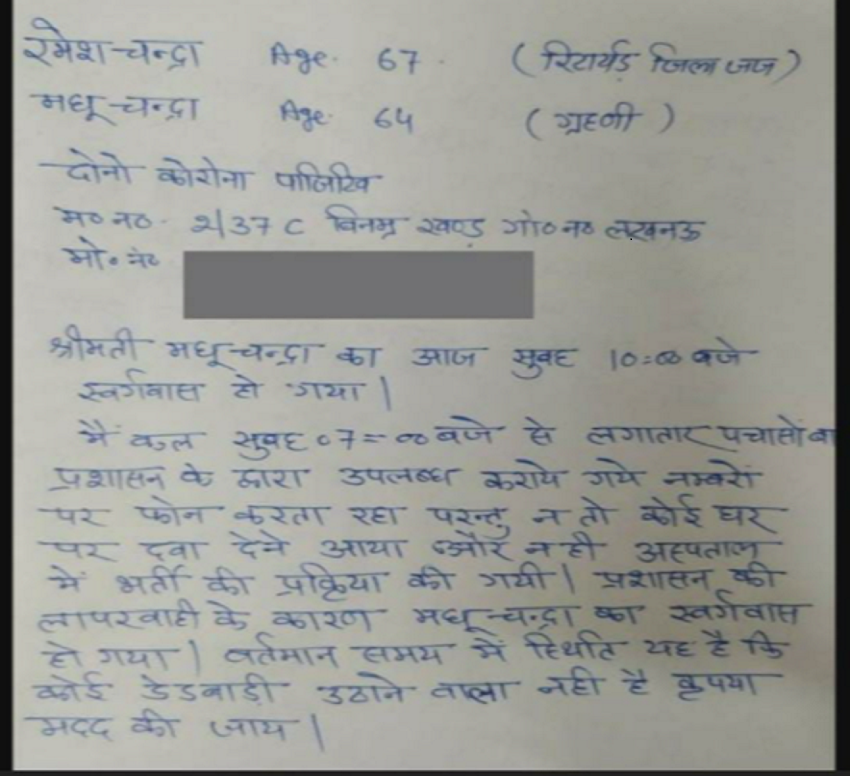 रमेश चन्द्रा Age. 67. (रिटायर्ड जिला जज)
मधू चन्द्रा Age. 64 (ग्रहणी)
दोनो कोरोना पाजिटिव
म० न०. 2/37 C विनम्र खण्ड़ गो० न० लखनऊ
मो. नं०
श्रीमती मधू चन्द्रा का आज सुबह 10:00 बजे
स्वर्गवास हो गया|
मैं कल सुबह 07=00 बजे से लगातार पचासों बा
प्रशासन के द्वारा उपलब्ध कराये गये नम्बरों
पर फोन करता रहा परन्तु न तो कोई घर
पर दवा देने आया और न ही अस्पताल
में भर्ती की प्रक्रिया की गयी| प्रशासन की
लापरवाही के कारण मधू चन्द्रा का स्वर्गवास
हो गया| वर्तमान समय में स्थिति यह है कि
कोई डेडबाड़ी उठाने वाला नही है कृपया
मदद की जाय|